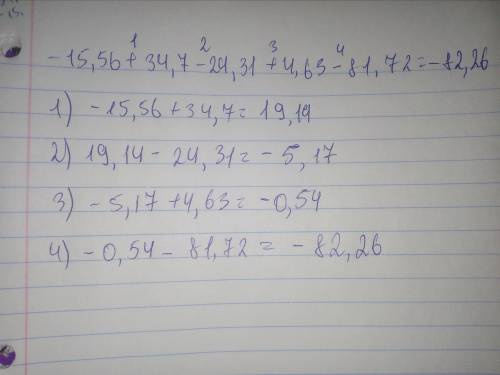 1 2 3 4
-15,56+34,7-24,31+4,63-81,72=-82,26
1) -15,56+34,7=19,14
2) 19,14-24,31=-5,17
3) -5,17+4,63=-0,54
4) -0,54-81,72=-82,26